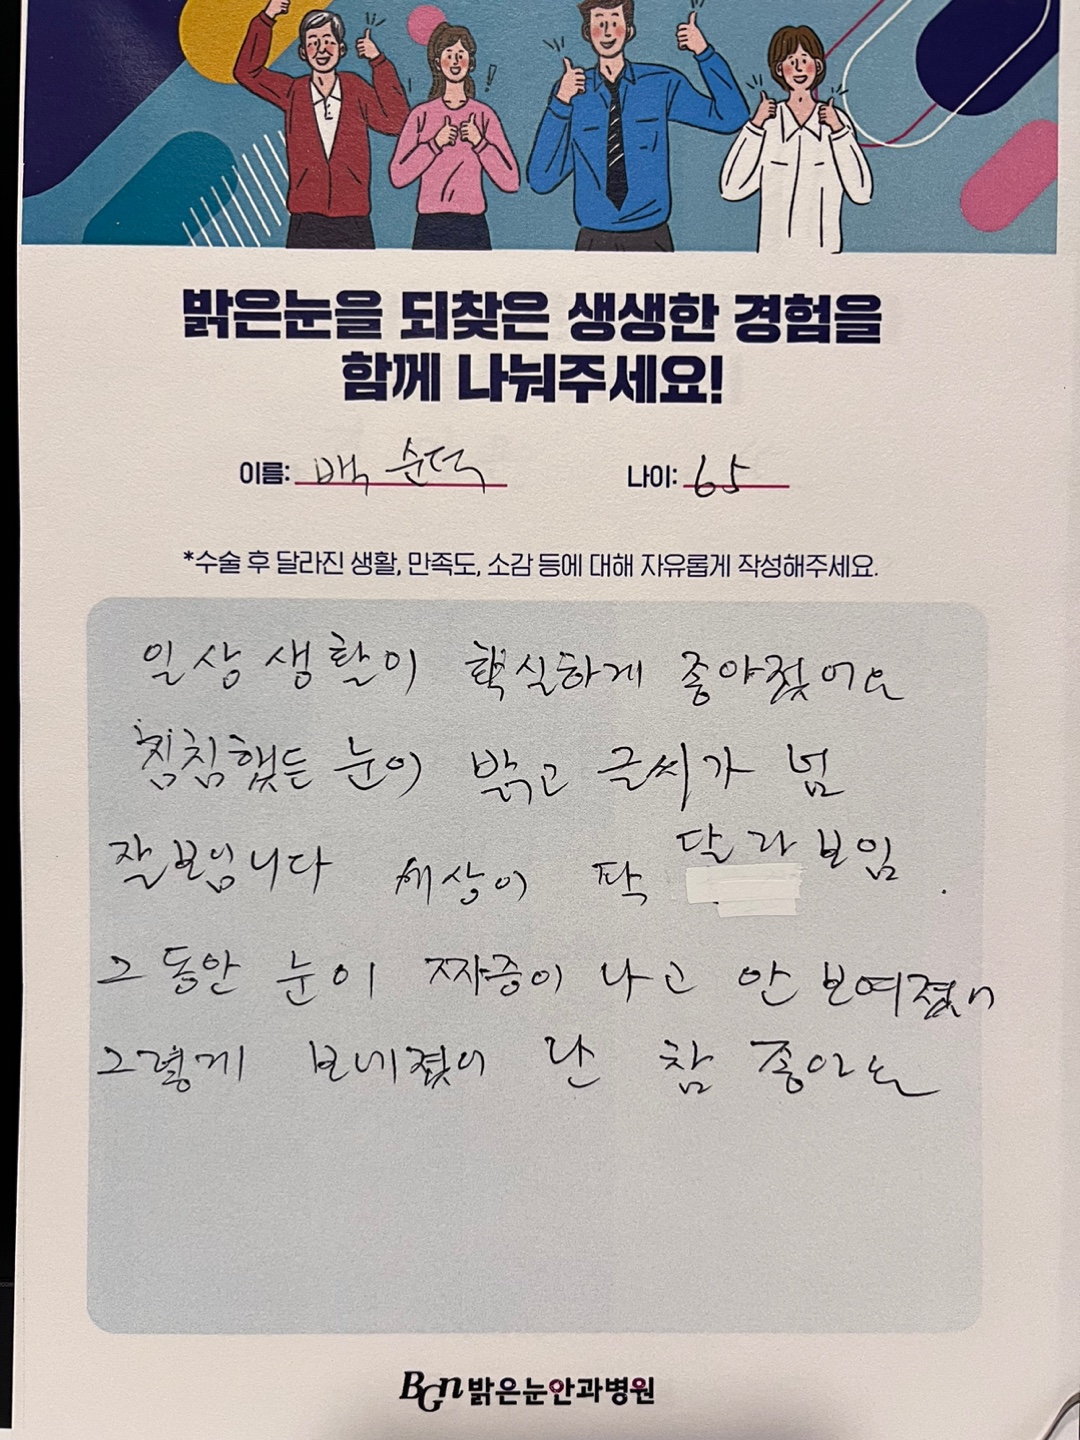 밝은눈을 되찾은 생생한 경험을
함께 나눠주세요!
이름: 백 순덕 나이: 65
*수술 후 달라진 생활, 만족도, 소감 등에 대해 자유롭게 작성해주세요.
일상 생활이 확실하게 좋아졌어요
침침했든 눈이 밝고 글씨가 넘
잘보입니다 세상이 딱 달라보임.
그동안 눈이 짜증이 나고 안 보여졌
그렇게 난 참 좋아
BGn 밝은눈안과병원